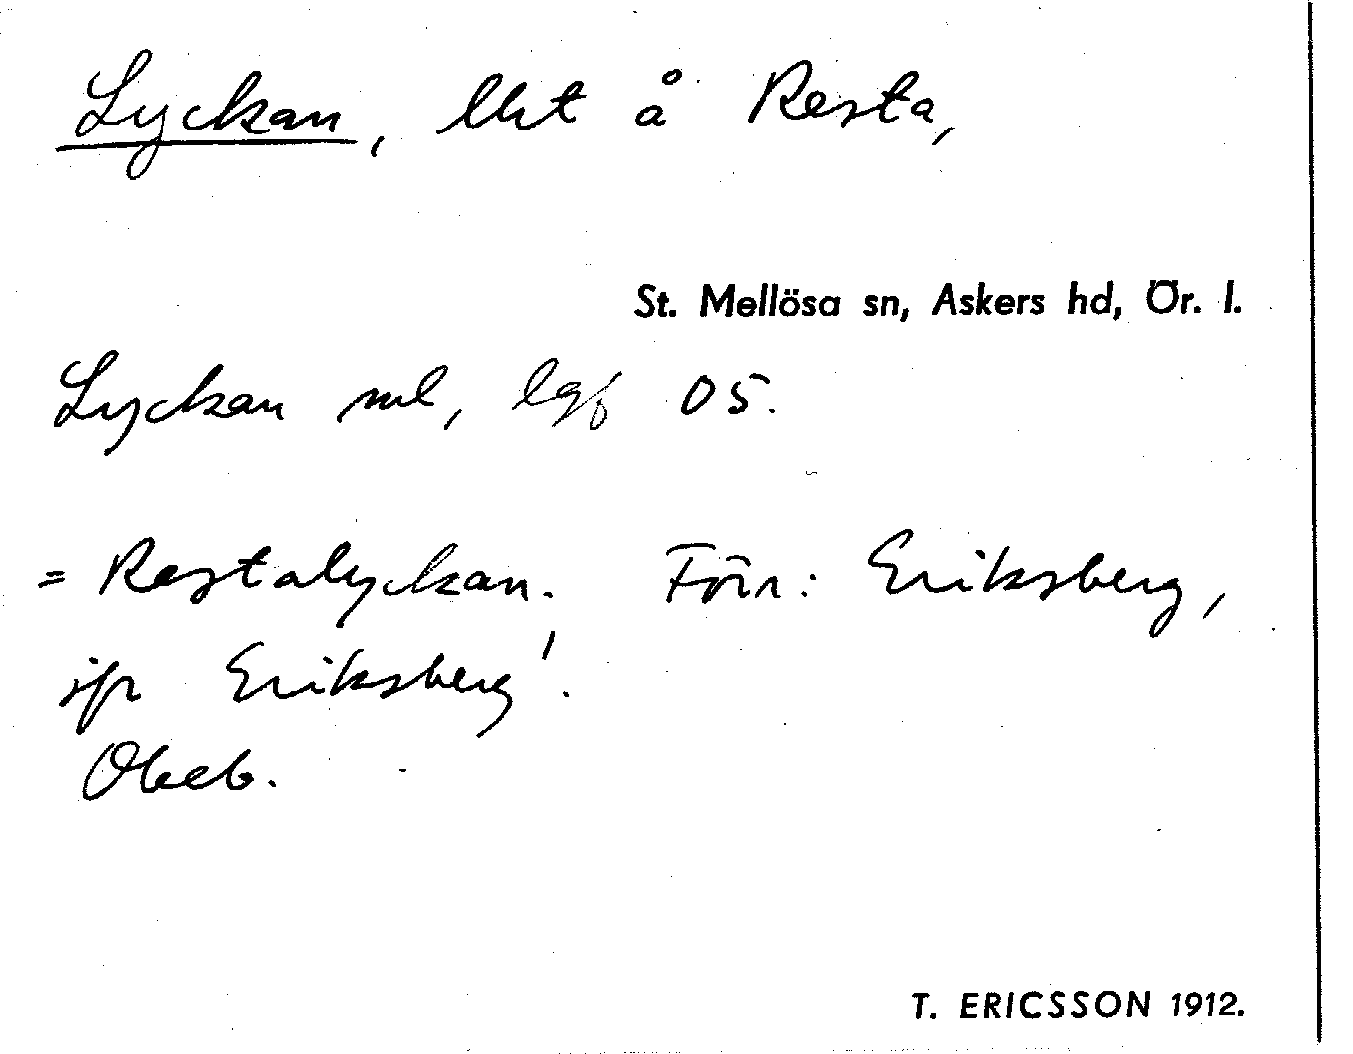 Lyckan, lht å Resta,
St. Mellösa sn, Askers hd, Ör. l.
Lyckan ml, lgf 05.
= Restalyckan. Förr: Eriksberg,
ifr Eriksberg'.
Obeb.
T. ERICSSON 1912.